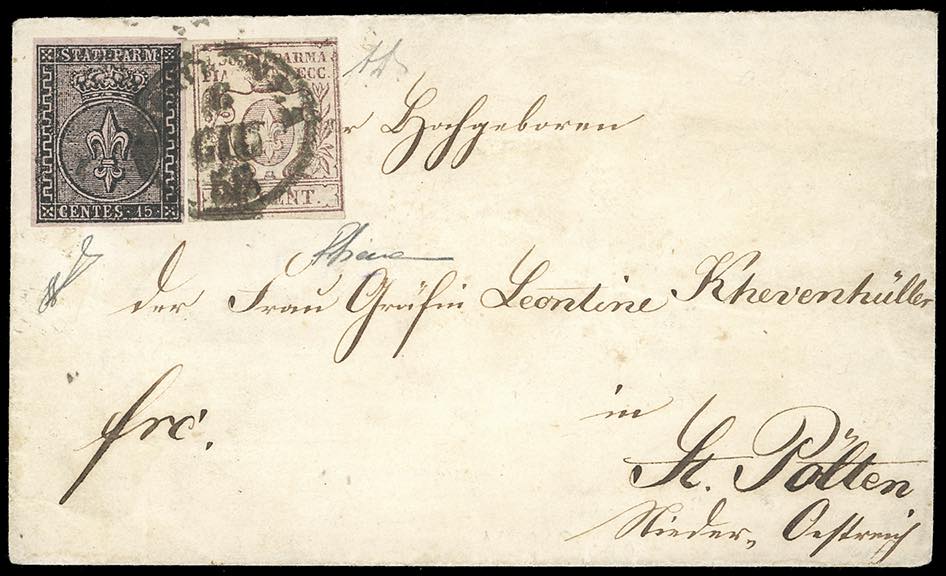 STATI PARM
CENTES. 15
PARMA
PIA ECC.
ENT.
GIU
58
Hochgeboren
der Frau Gräfin Leontine Khevenhüller
frc.
in
St. Pölten
Nieder-Oestreich